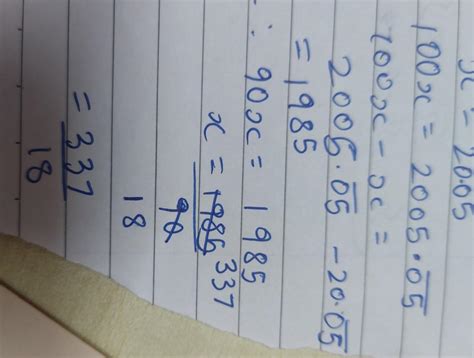 x = 20.05
100x = 2005.0̅5̅
100x - x =
2005.0̅5̅ - 20.0̅5̅
= 1985
∴ 90x = 1985
x = 1985 337
90
18
= 337
18